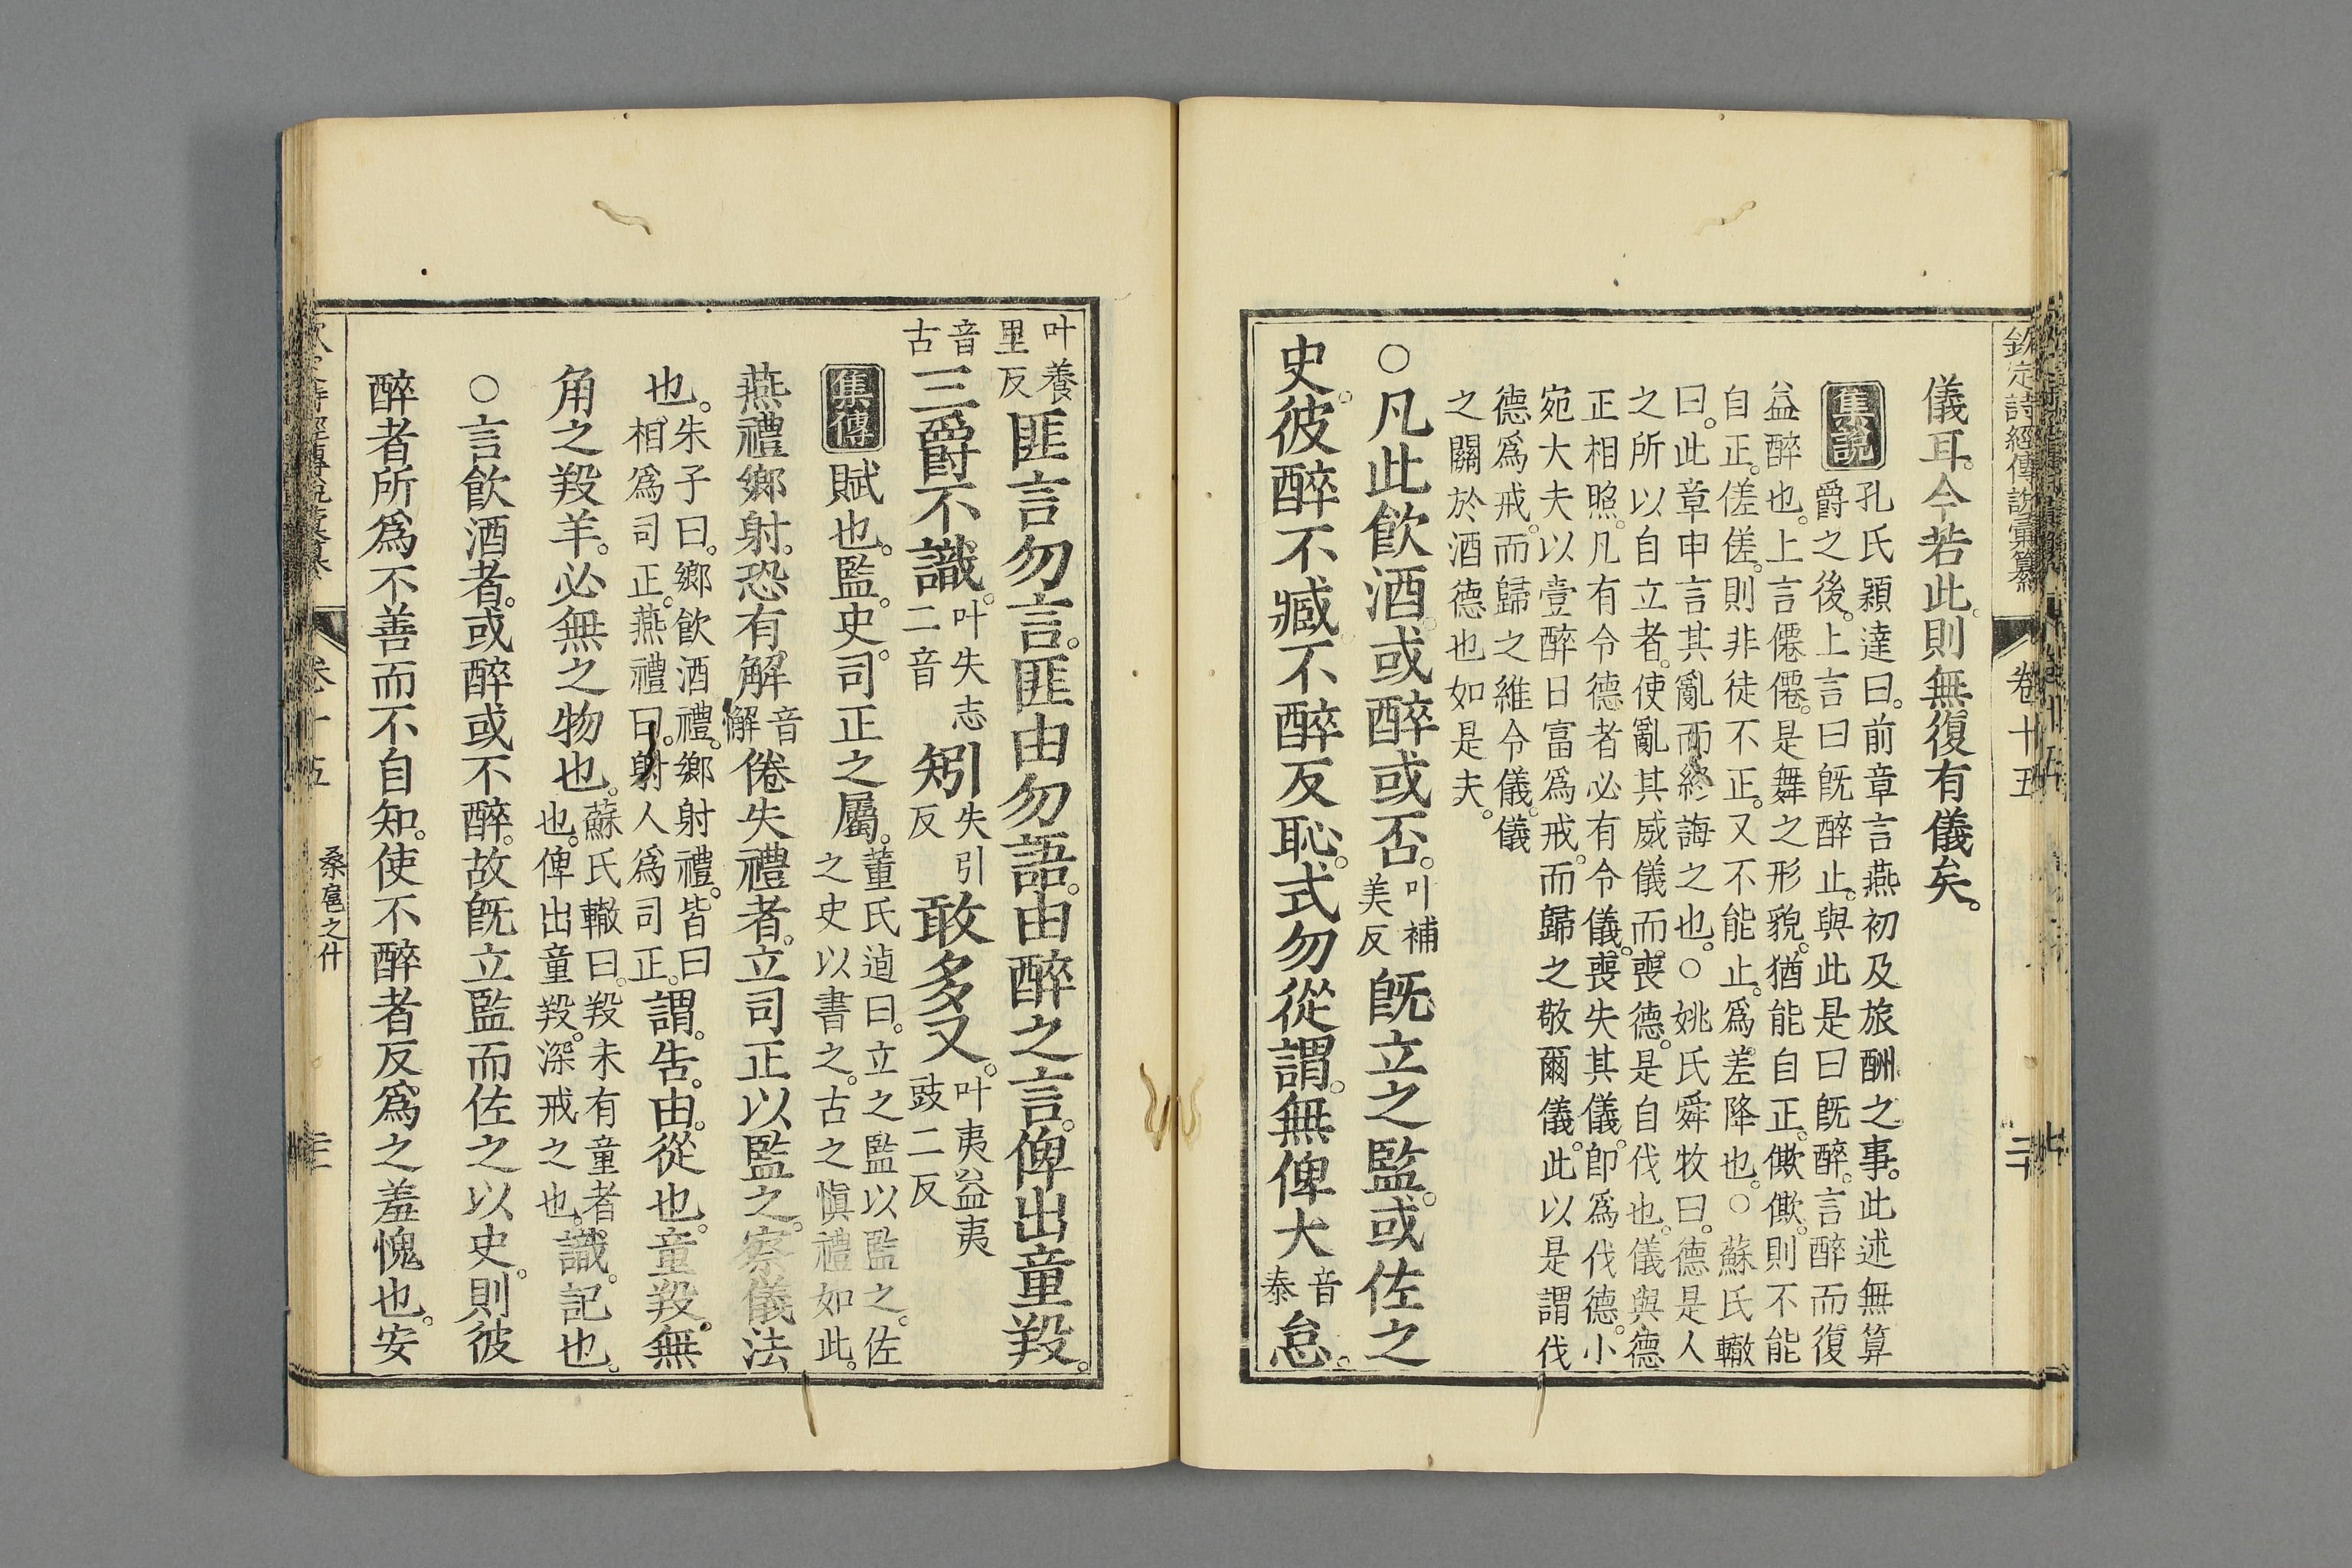 欽定詩經傳說彙纂 卷十五
儀耳。今若此。則無復有儀矣。
集說
孔氏穎達曰。前章言燕初及旅酬之事。此述無算
爵之後。上言曰旣醉止。與此是曰旣醉。言醉而復
益醉也。上言僊僊。是舞之形貌。猶能自正。僛僛。則不能
自正。傞傞。則非徒不正。又不能止。爲差降也。○蘇氏轍
曰。此章申言其亂而終誨之也。○姚氏舜牧曰。德是人
之所以自立者。使亂其威儀而喪德。是自伐也。儀與德
正相照。凡有令德者必有令儀。喪失其儀。卽爲伐德。小
宛大夫以壹醉日富爲戒。而歸之敬爾儀。此以是謂伐
德爲戒。而歸之維令儀。儀
之關於酒德也如是夫。
○凡此飮酒。或醉或否。叶補美反旣立之監。或佐之
史。彼醉不臧。不醉反恥。式勿從謂。無俾大音泰怠。
叶養里反匪言勿言。匪由勿語。由醉之言。俾出童羖。
音古三爵不識。叶失志二音矧失引反敢多又。叶夷益夷豉二反
集傳賦也。監。史。司正之屬。董氏逌曰。立之監以監之。佐之史以書之。古之愼禮如此。
燕禮鄉射。恐有解音懈倦失禮者。立司正以監之。察儀法
也。朱子曰。鄉飮酒禮。鄉射禮。皆曰相爲司正。燕禮曰。射人爲司正。謂。告。由。從也。童羖。無
角之羖羊。必無之物也。蘇氏轍曰。羖未有童者也。俾出童羖。深戒之也。識。記也。
○言飮酒者。或醉或不醉。故旣立監而佐之以史。則彼
醉者所爲不善而不自知。使不醉者反爲之羞愧也。安
桑扈之什